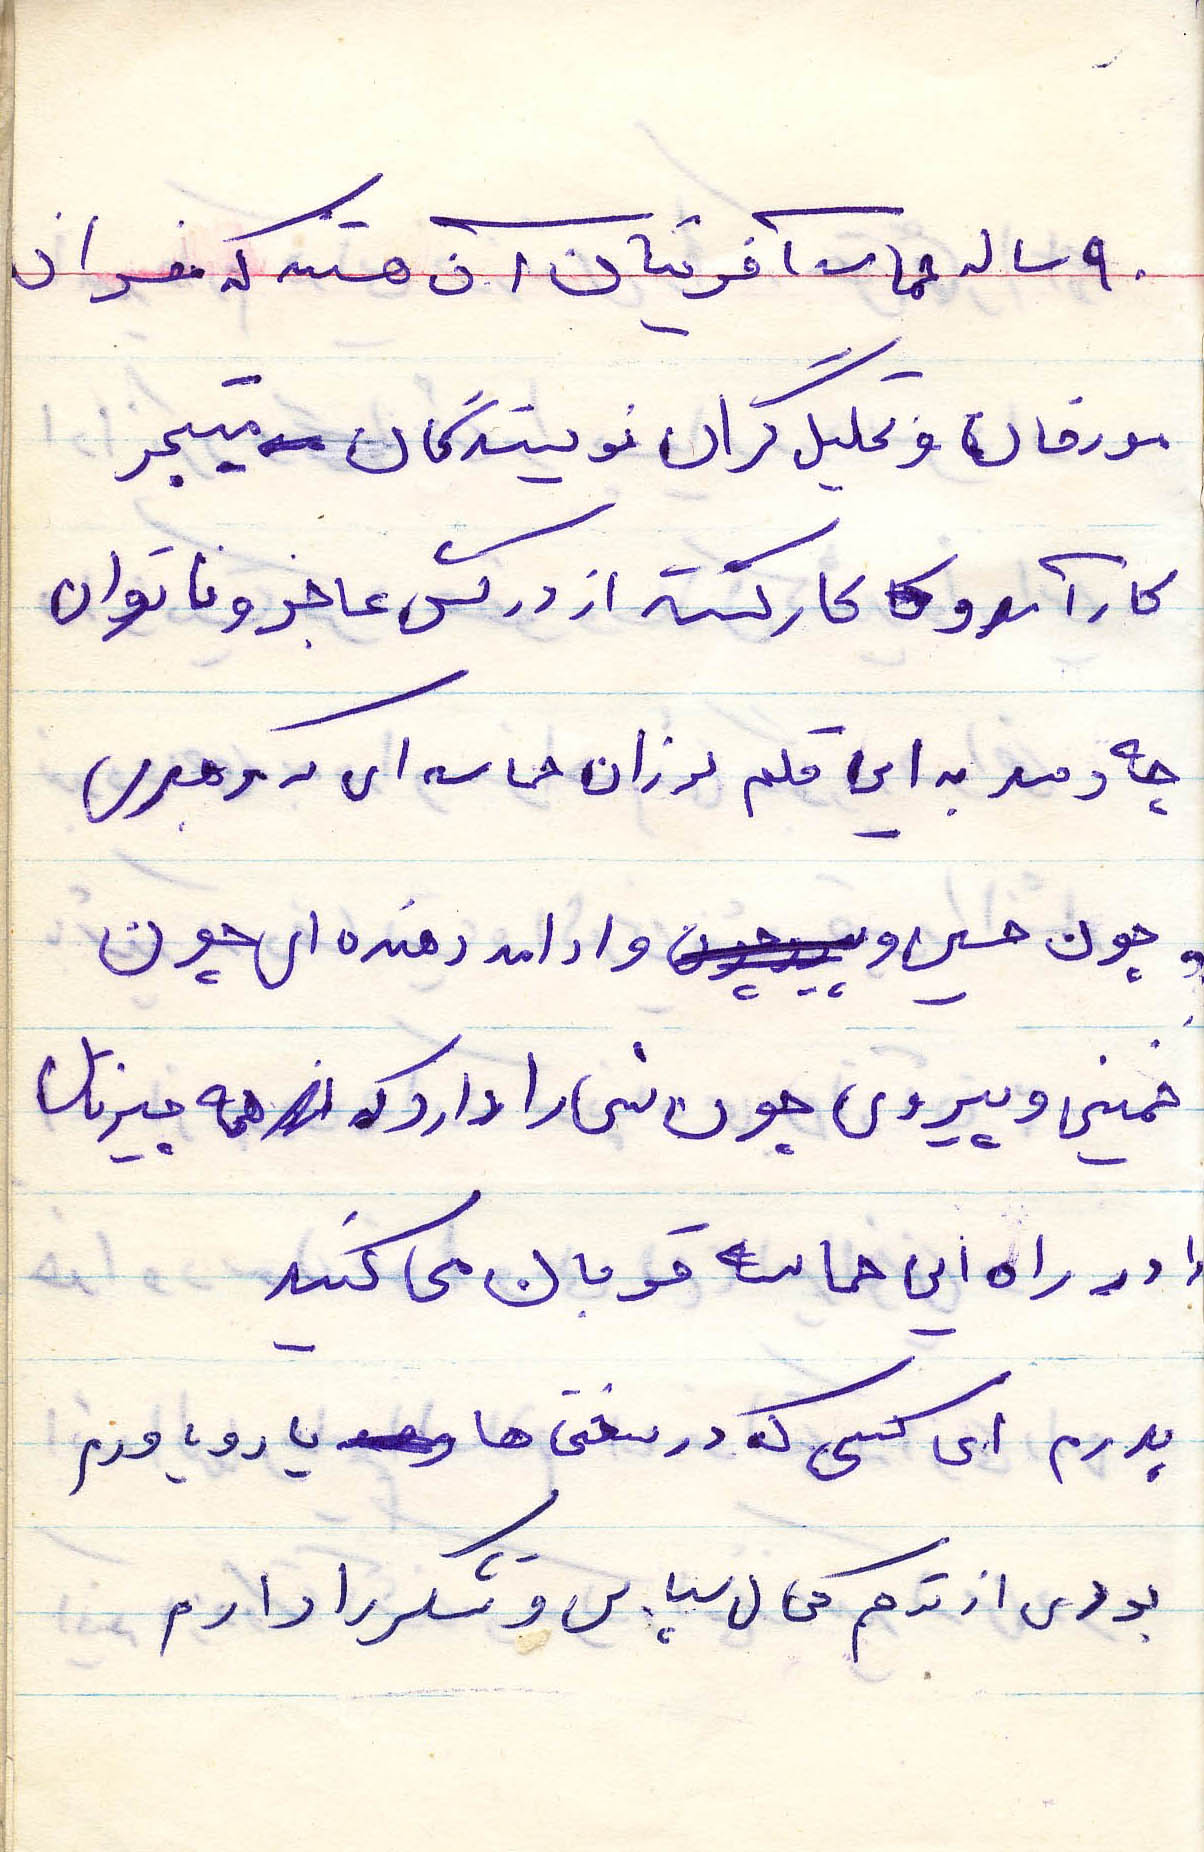 ۹۰ ساله حماسه آفرینان آن هستند که مفسران
مورخان و تحلیل گران نویسندگان متبحر
کارآمد و کارکشته از درکش عاجز و ناتوان
چه رسد به این قلم لرزان حماسه ای که رهبری
چون حسین و و ادامه دهنده ای چون
خمینی و پیروی چون شما را دارد که همه چیزتان
را در راه این حماسه قربان می کنید
پدرم ای کسی که در سختی ها یار و یاورم
بودی از تو هم کمال سپاس و تشکر را دارم